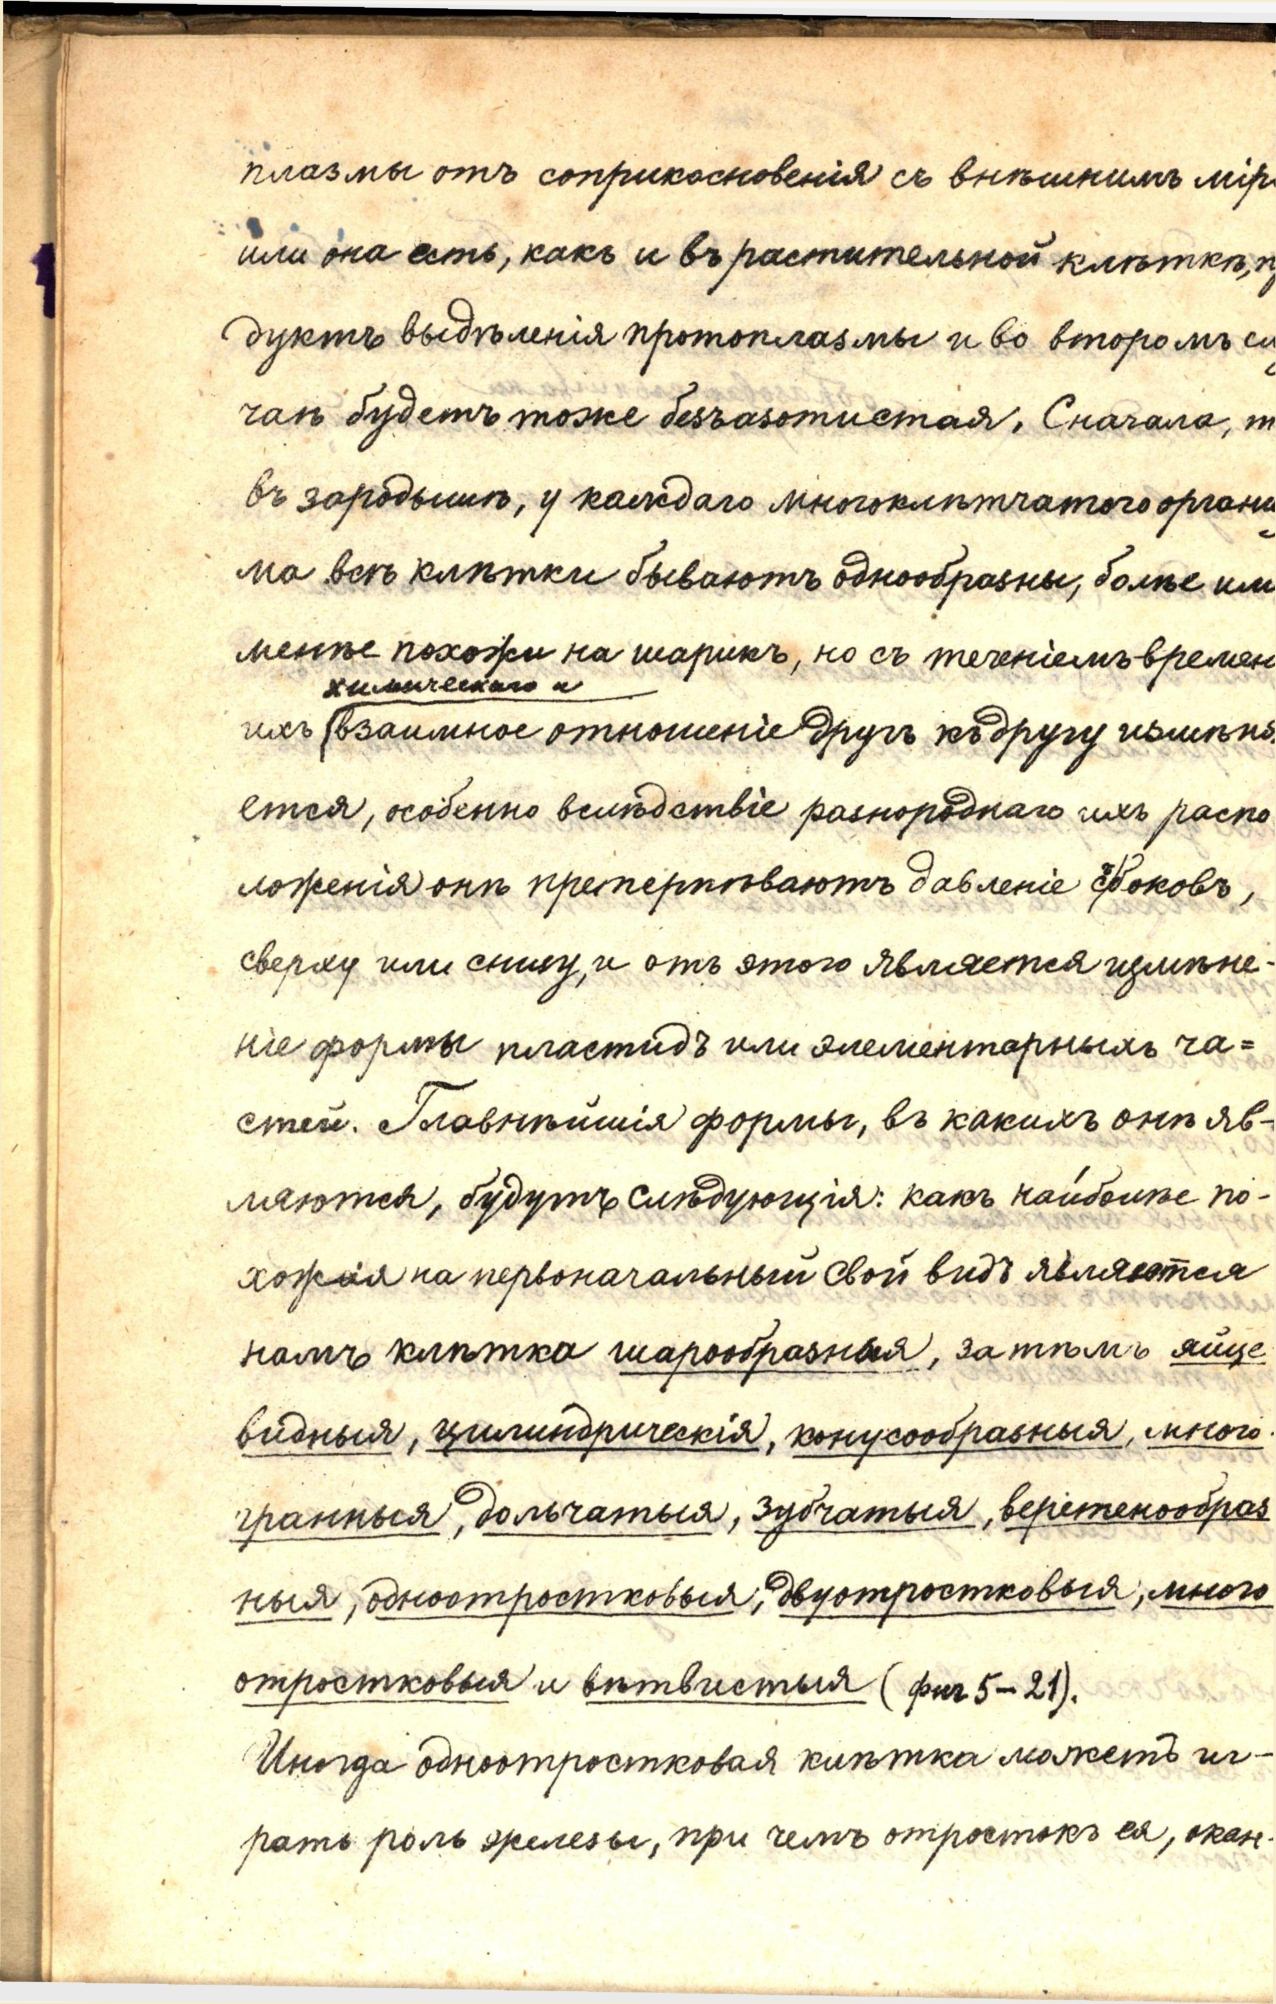 плазмы отъ соприкосновенія съ внѣшнимъ мір
или она есть, какъ и въ растительной клѣткѣ, п
дуктъ выдѣленія протоплазмы и во второмъ сл
чаѣ будетъ тоже безъазотистая. Сначала, т
въ зародышѣ, у каждаго многоклѣтчатого органи
ма всѣ клѣтки бываютъ однообразны, болѣе или
менѣе похожи на шарикъ, но съ теченіемъ времен
химическаго и
ихъ взаимное отношеніе другъ къ другу измѣня
ется, особенно вслѣдствіе разнороднаго ихъ распо
ложенія онѣ претерпѣваютъ давленіе съ боковъ,
сверху или снизу, и отъ этого является измѣне-
ніе формы пластидъ или элементарныхъ ча=
стей. Главнѣйшія формы, въ какихъ онѣ яв-
ляются, будутъ слѣдующія: какъ наиболѣе по-
хожія на первоначальный свой видъ являются
намъ клѣтка шарообразныя, за тѣмъ яйце
видныя, цилиндрическія, конусообразныя, много-
гранныя, дольчатыя, зубчатыя, веретенообраз
ныя, одноотростковыя, двуотростковыя, много
отростковыя и вѣтвистыя (фиг 5-21).
Иногда одноотростковая клѣтка можетъ иг-
рать роль железы, при чемъ отростокъ ея, окан-